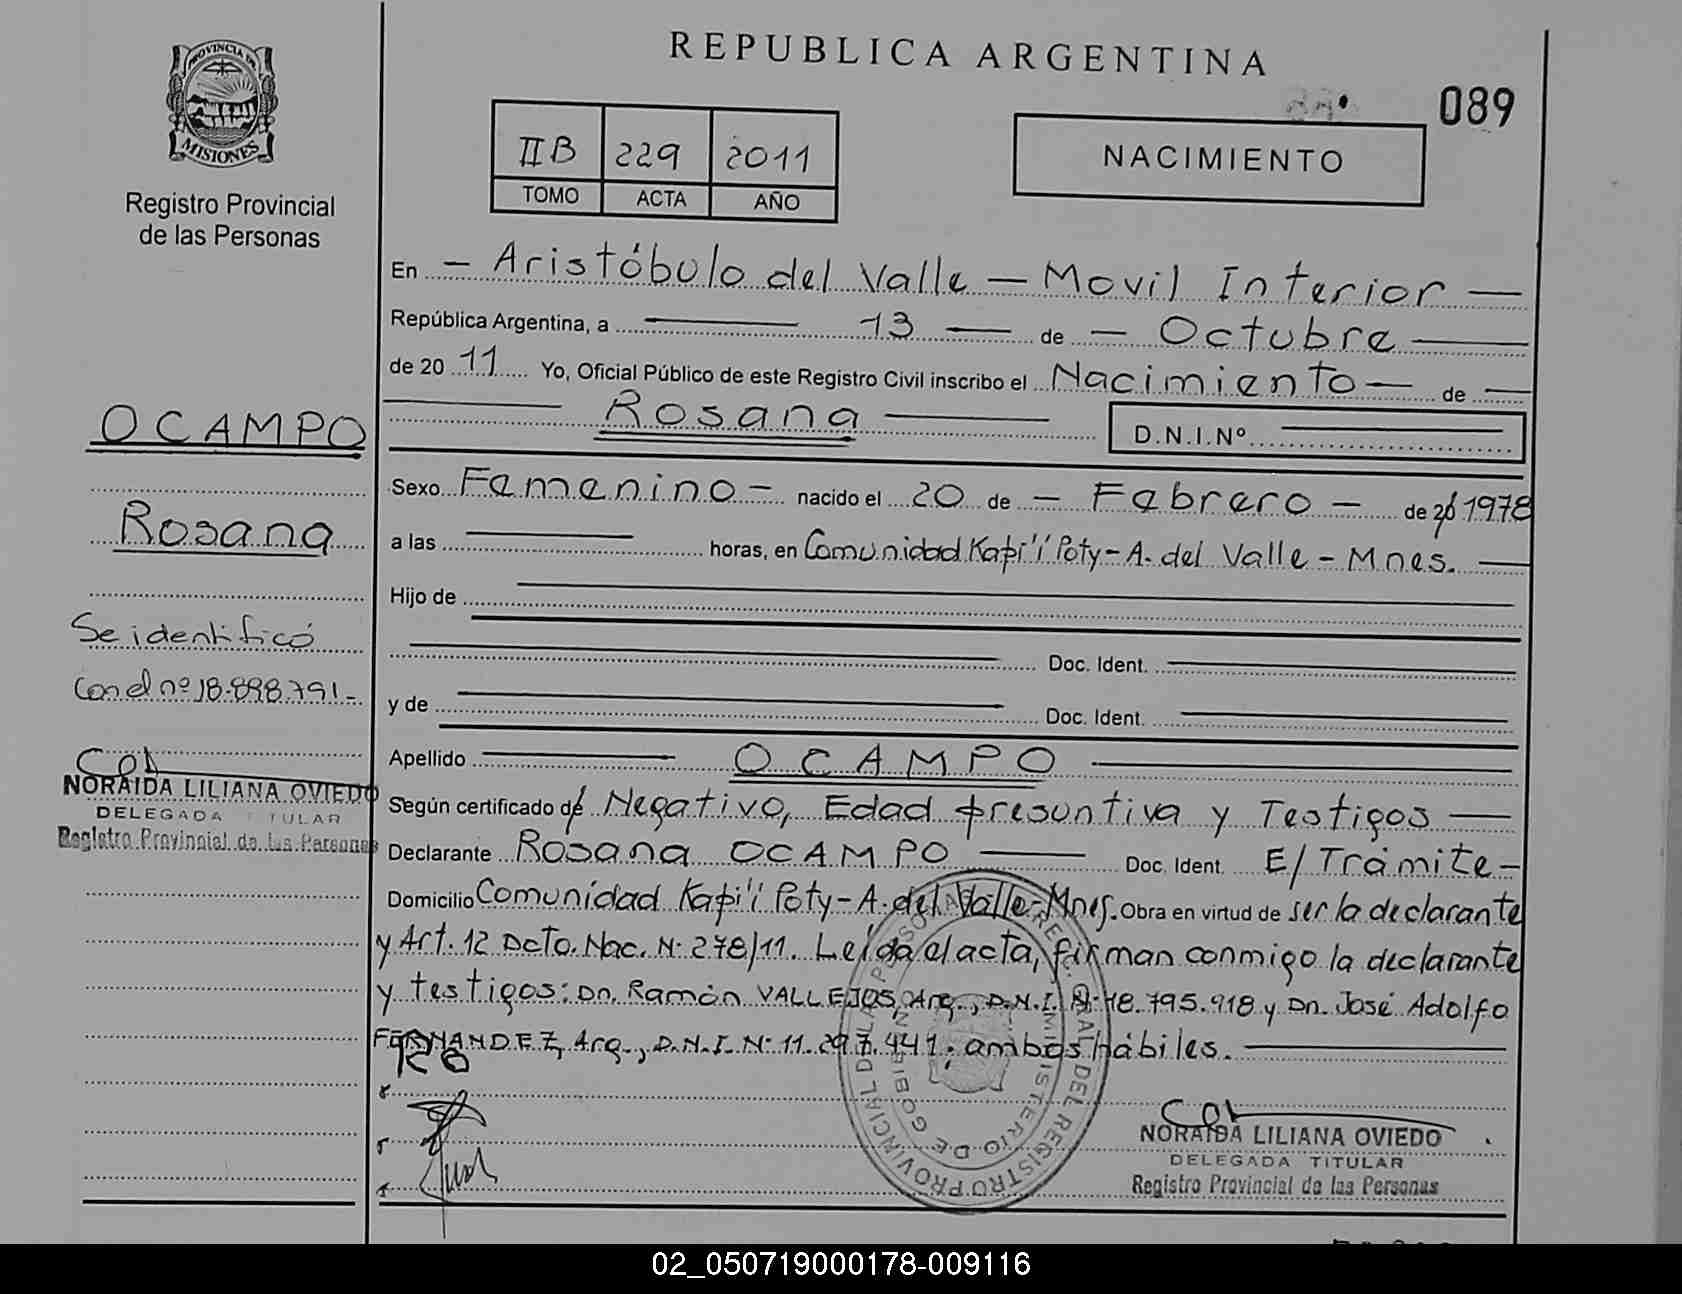 REPUBLICA ARGENTINA
089
PROVINCIA DE
MISIONES
Registro Provincial
de las Personas
II B 229 2011
TOMO ACTA AÑO
NACIMIENTO
En - Aristóbulo del Valle - Movil Interior -
República Argentina, a 13 de - Octubre
de 20 11 Yo, Oficial Público de este Registro Civil inscribo el Nacimiento - de
Rosana D.N.I.Nº
Sexo Femenino - nacido el 20 de - Febrero - de 20 1978
a las horas, en Comunidad Kapi'i Poty - A. del Valle - Mnes.
Hijo de
Doc. Ident.
y de Doc. Ident.
Apellido OCAMPO
Según certificado de Negativo, Edad presuntiva y Testigos
Declarante Rosana OCAMPO Doc. Ident. E/Trámite -
Domicilio Comunidad Kapi'i Poty - A. del Valle - Mnes. Obra en virtud de ser la declarante
y Art. 12 Dcto. Nac. Nº 278/11. Leída el acta, firman conmigo la declarante
y testigos: Dn. Ramón VALLEJOS, Arg., D.N.I. Nº 18.795.918 y Dn. José Adolfo
FERNANDEZ, Arg., D.N.I. Nº 11.297.441; ambos hábiles.
OCAMPO
Rosana
Se identificó
con el nº 18.898.791-
NORAIDA LILIANA OVIEDO
DELEGADA TITULAR
Registro Provincial de las Personas
NORAIDA LILIANA OVIEDO
DELEGADA TITULAR
Registro Provincial de las Personas
REGISTRO PROVINCIAL DE LAS PERSONAS
MINISTERIO DE GOBIERNO
02_050719000178-009116